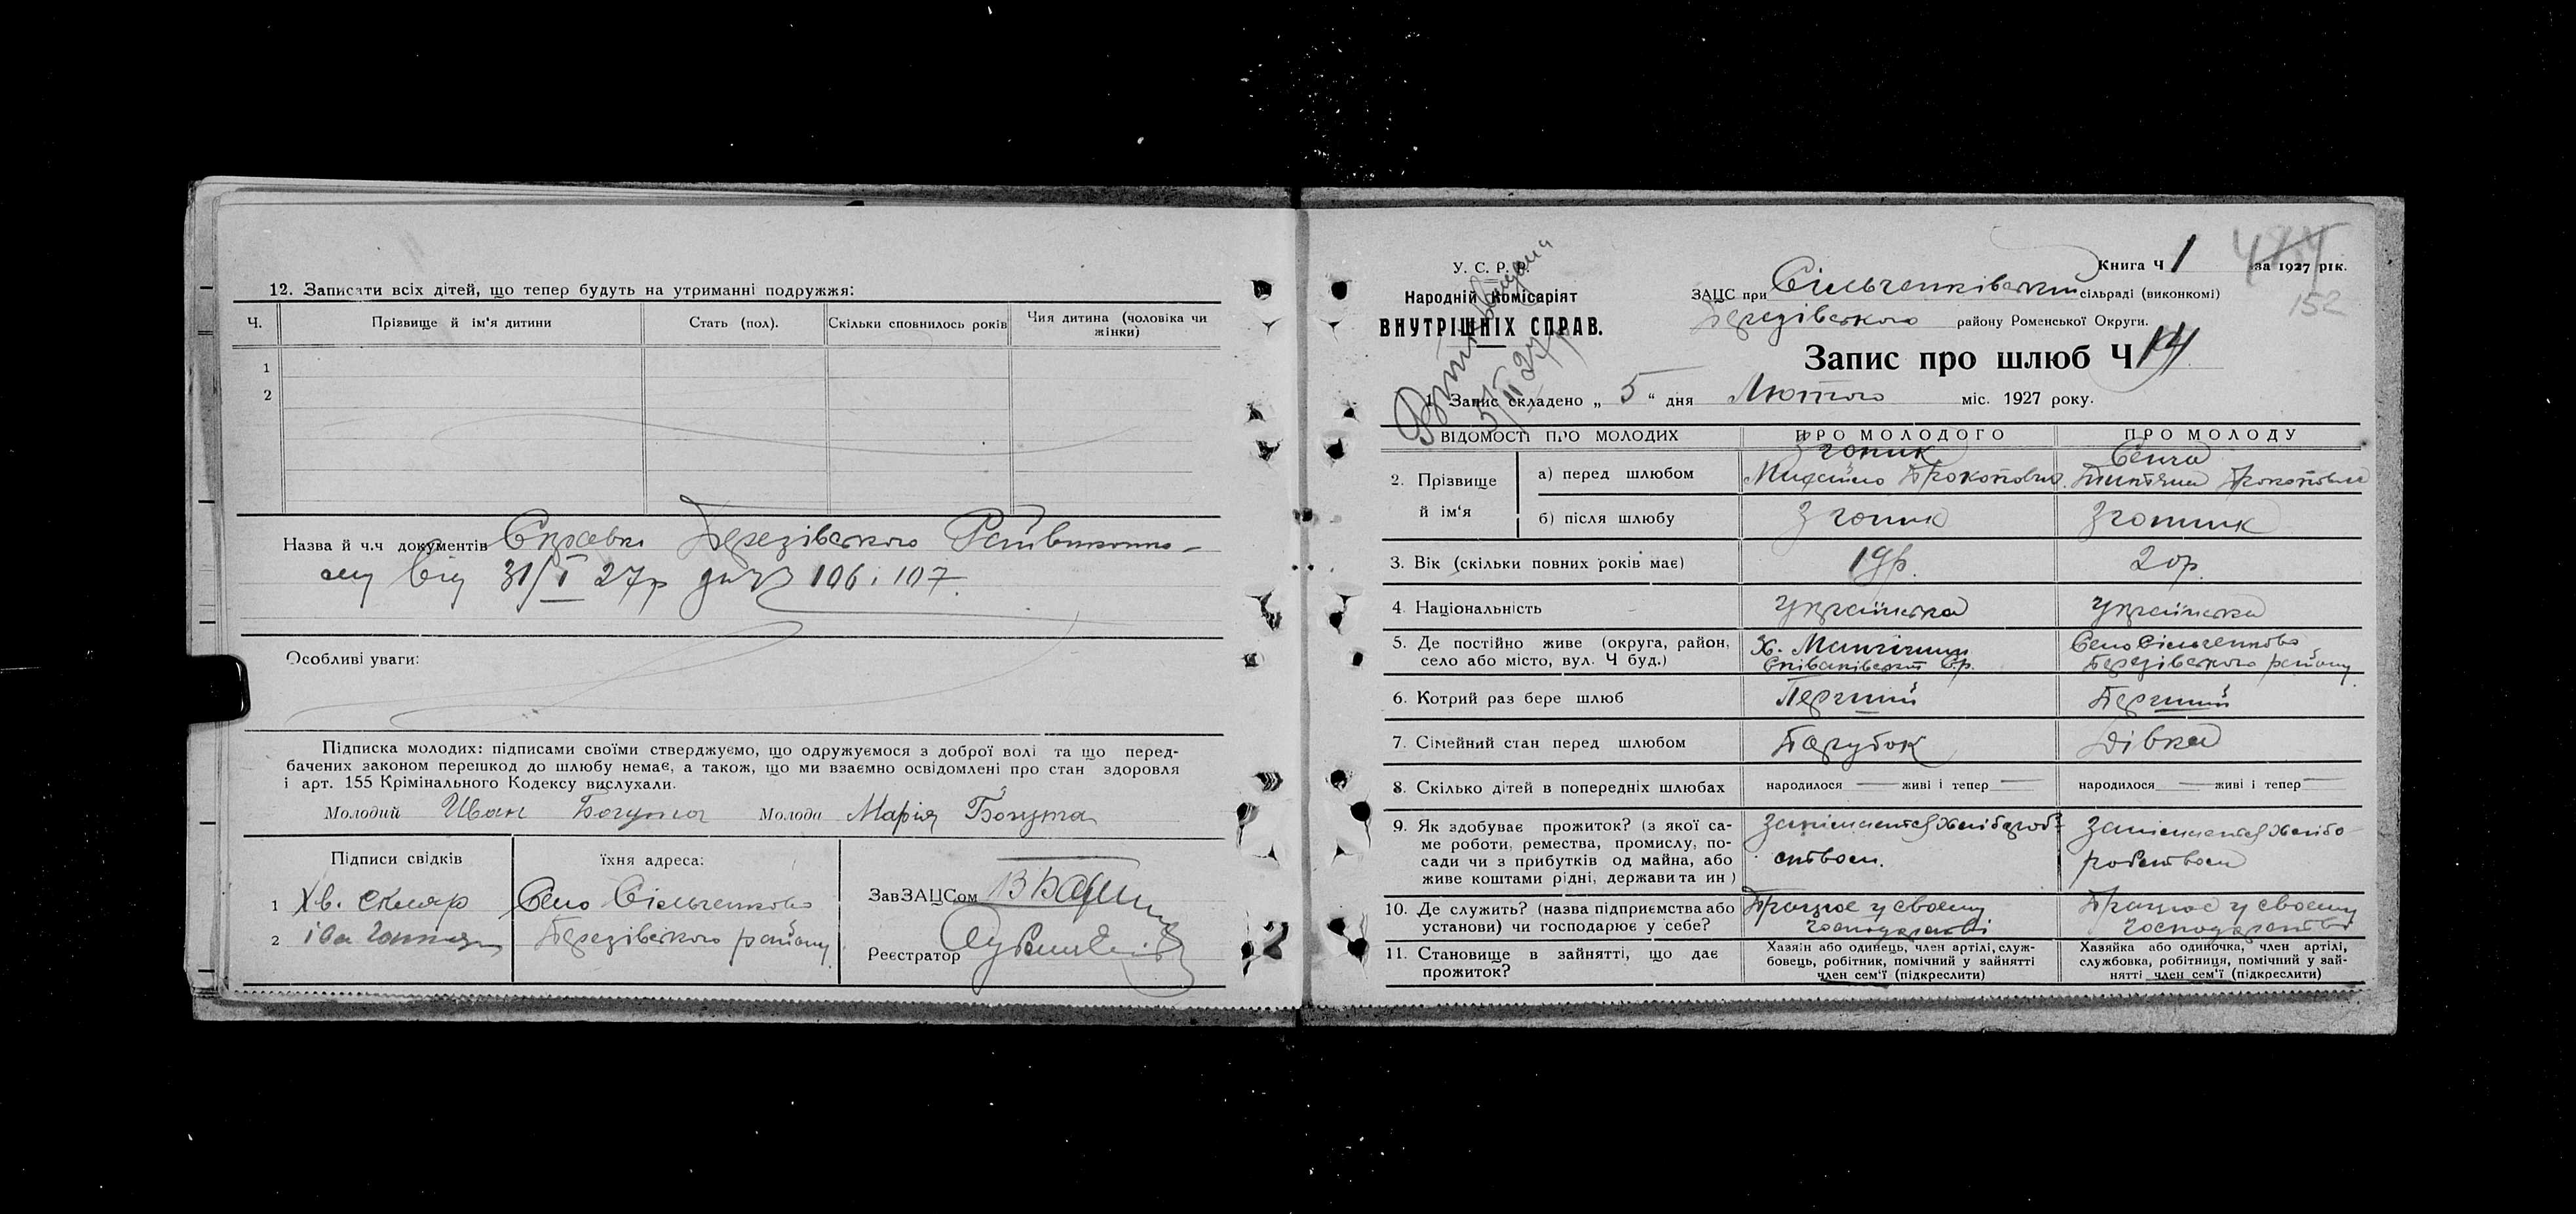 12. Записати всіх дітей, що тепер будуть на утриманні подружжя:
Ч. Прізвище й ім'я дитини Стать (пол). Скільки сповнилось років Чия дитина (чоловіка чи жінки)
1
2
Назва й ч.ч документів Справки Березівського Райвиконко-
му від 31/I 27р за № 106 і 107
Особливі уваги:
Підписка молодих: підписами своїми стверджуємо, що одружуємося з доброї волі та що перед-
бачених законом перешкод до шлюбу немає, а також, що ми взаємно освідомлені про стан здоровля
і арт. 155 Крімінального Кодексу вислухали.
Молодий Иван Молода Марія
Підписи свідків їхня адреса:
1 Хв. Скляр Село Сільченково
2 Березівського району
ЗавЗАЦСом
Реєстратор
У. С. Р. Р.
Народній Комісаріят
ВНУТРІШНІХ СПРАВ.
5/II 27р
Книга Ч 1 за 1927 рік.
152
ЗАЦС при Сільченківській сільраді (виконкомі)
Березівського району Роменської Округи.
Запис про шлюб Ч 14
1. Запис складено „ 5 “ дня Лютого міс. 1927 року.
ВІДОМОСТІ ПРО МОЛОДИХ ПРО МОЛОДОГО ПРО МОЛОДУ
2. Прізвище й ім'я
а) перед шлюбом Згоник Михайло Прокопович Прокоповна
б) після шлюбу Згоник Згонник
3. Вік (скільки повних років має) 19р. 20р.
4. Національність Українська Українська
5. Де постійно живе (округа, район,
село або місто, вул. Ч буд.) Х. Співаківської С.р. Село Сільченково Березівського району
6. Котрий раз бере шлюб Перший Перший
7. Сімейний стан перед шлюбом Парубок Дівка
8. Скілько дітей в попередніх шлюбах народилося — живі і тепер — народилося — живі і тепер —
9. Як здобуває прожиток? (з якої са-
ме роботи, ремества, промислу, по-
сади чи з прибутків од майна, або
живе коштами рідні, держави та ин)
10. Де служить? (назва підприємства або
установи) чи господарює у себе? Працює у своєму господарстві Працює у своєму господарстві
11. Становище в зайнятті, що дає
прожиток?
Хазяїн або одинець, член артілі, служ-
бовець, робітник, помічний у зайнятті
член сем'ї (підкреслити)
Хазяйка або одиночка, член артілі,
службовка, робітниця, помічний у зай-
нятті член сем'ї (підкреслити)